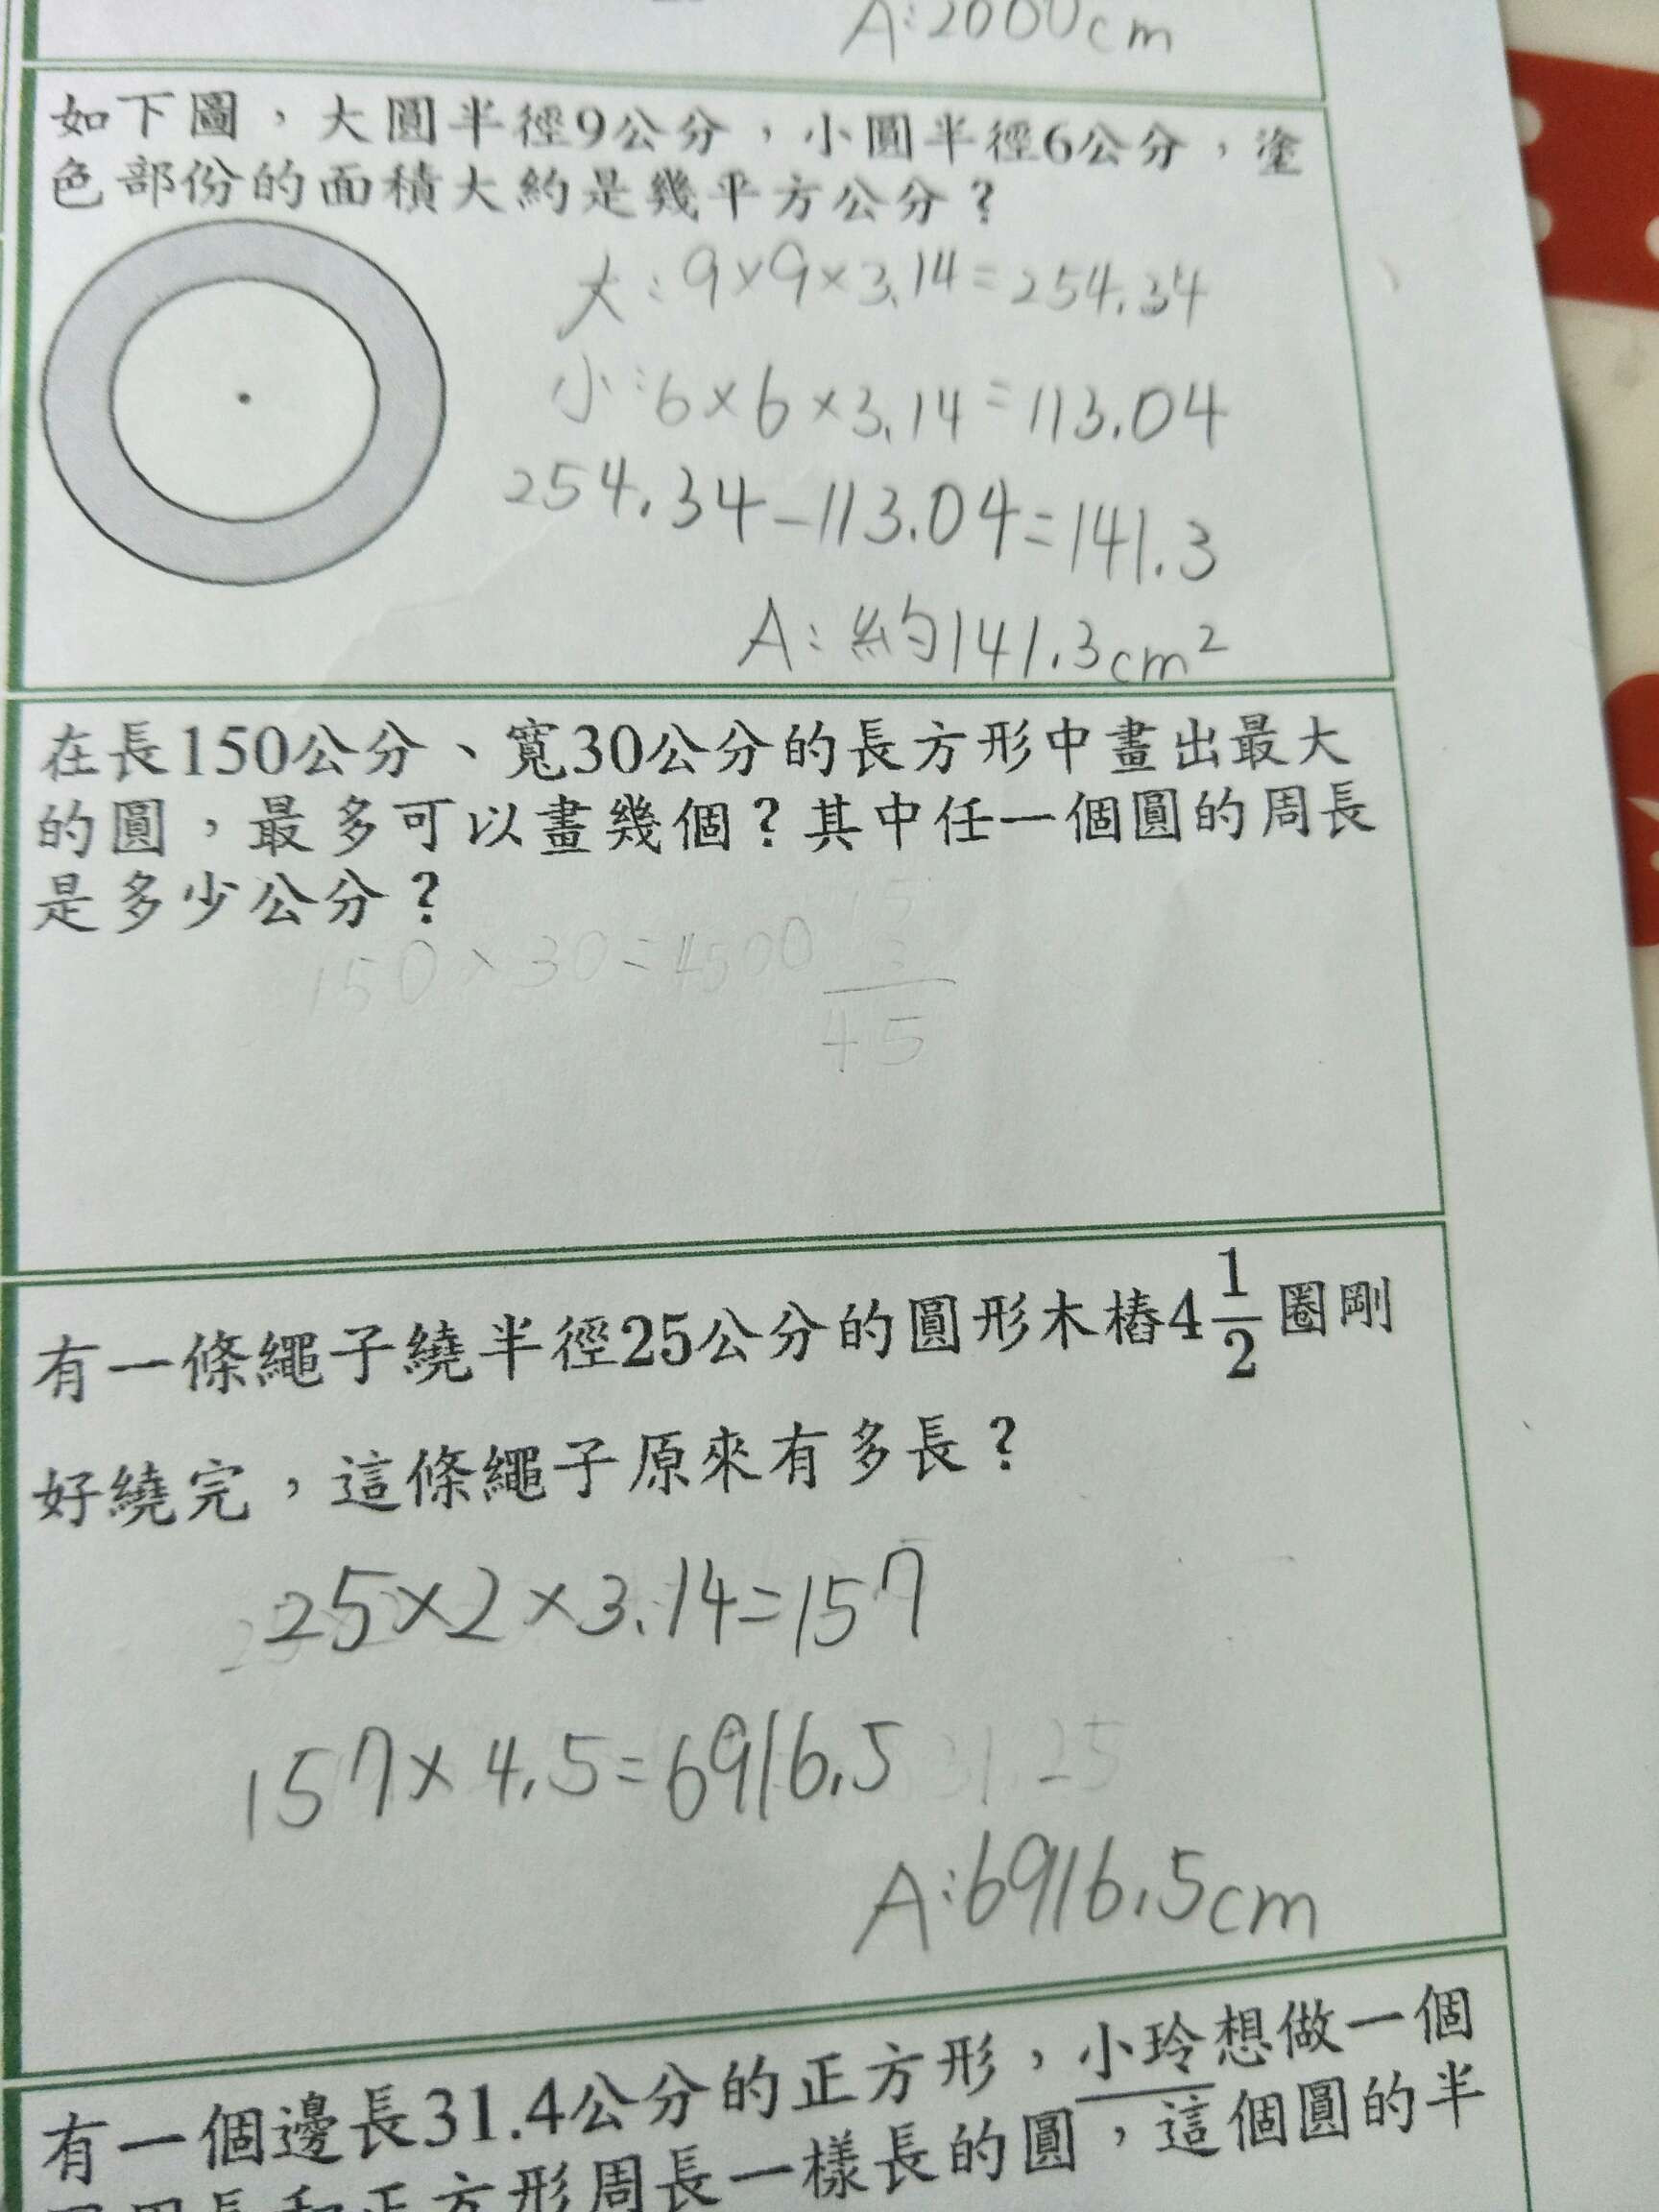 A:2000cm
如下圖，大圓半徑9公分，小圓半徑6公分，塗
色部份的面積大約是幾平方公分？
大:9×9×3.14=254.34
小:6×6×3.14=113.04
254.34-113.04=141.3
A:約141.3cm²
在長150公分、寬30公分的長方形中畫出最大
的圓，最多可以畫幾個？其中任一個圓的周長
是多少公分？
150×30=4500
45
有一條繩子繞半徑25公分的圓形木樁4 1/2 圈剛
好繞完，這條繩子原來有多長？
25×2×3.14=157
157×4.5=6916.5
A:6916.5cm
有一個邊長31.4公分的正方形，小玲想做一個
和正方形周長一樣長的圓，這個圓的半